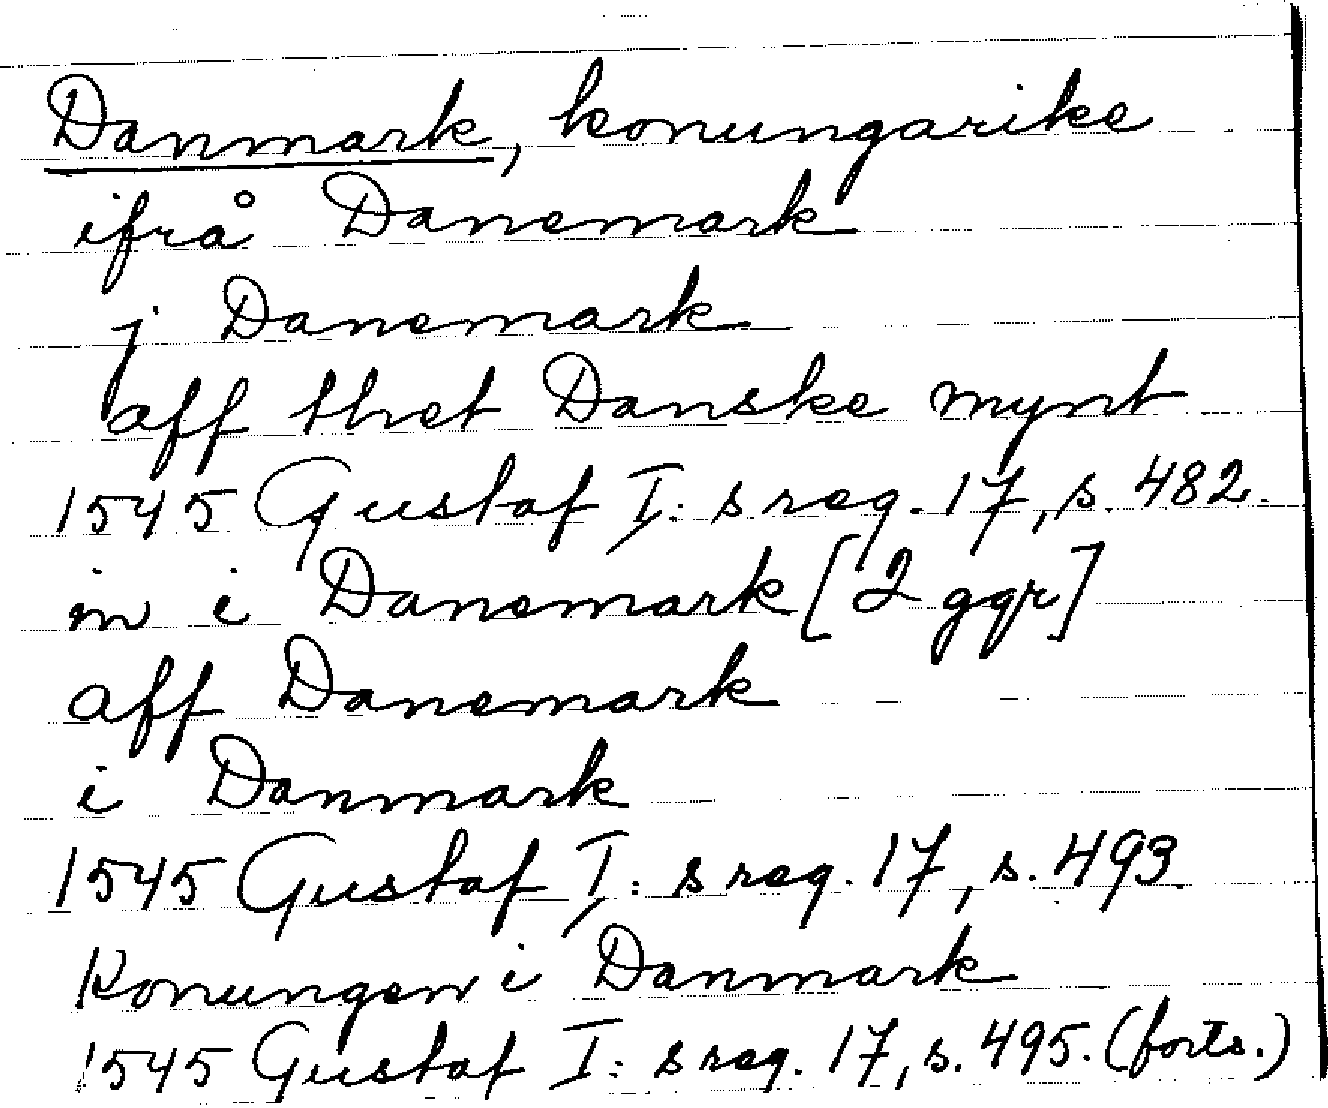 Danmark, konungarike
ifrå Danemark
j Danemark
aff thet Danske mynt
1545 Gustaf I: s reg. 17, s. 482.
in i Danemark [2 ggr]
aff Danemark
i Danmark
1545 Gustaf I: s reg. 17, s. 493.
Konungen i Danmark
1545 Gustaf I: s reg. 17, s. 495. (forts.)